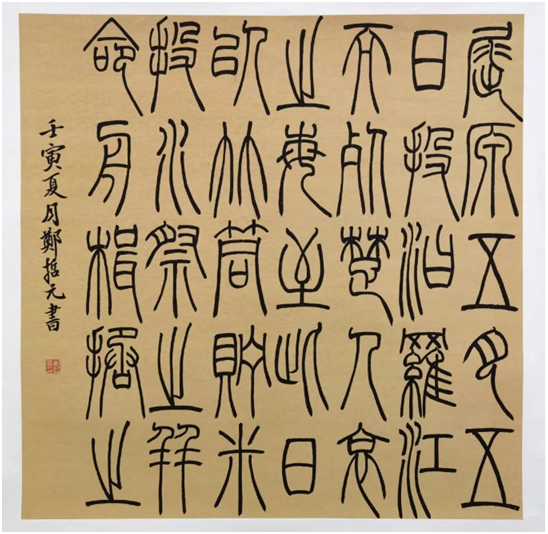 屈原五月五
日投汨羅江
而死楚人哀
之每至此日
以竹筒貯米
投水祭之并
命舟楫拯之
壬寅夏月鄭哲元書